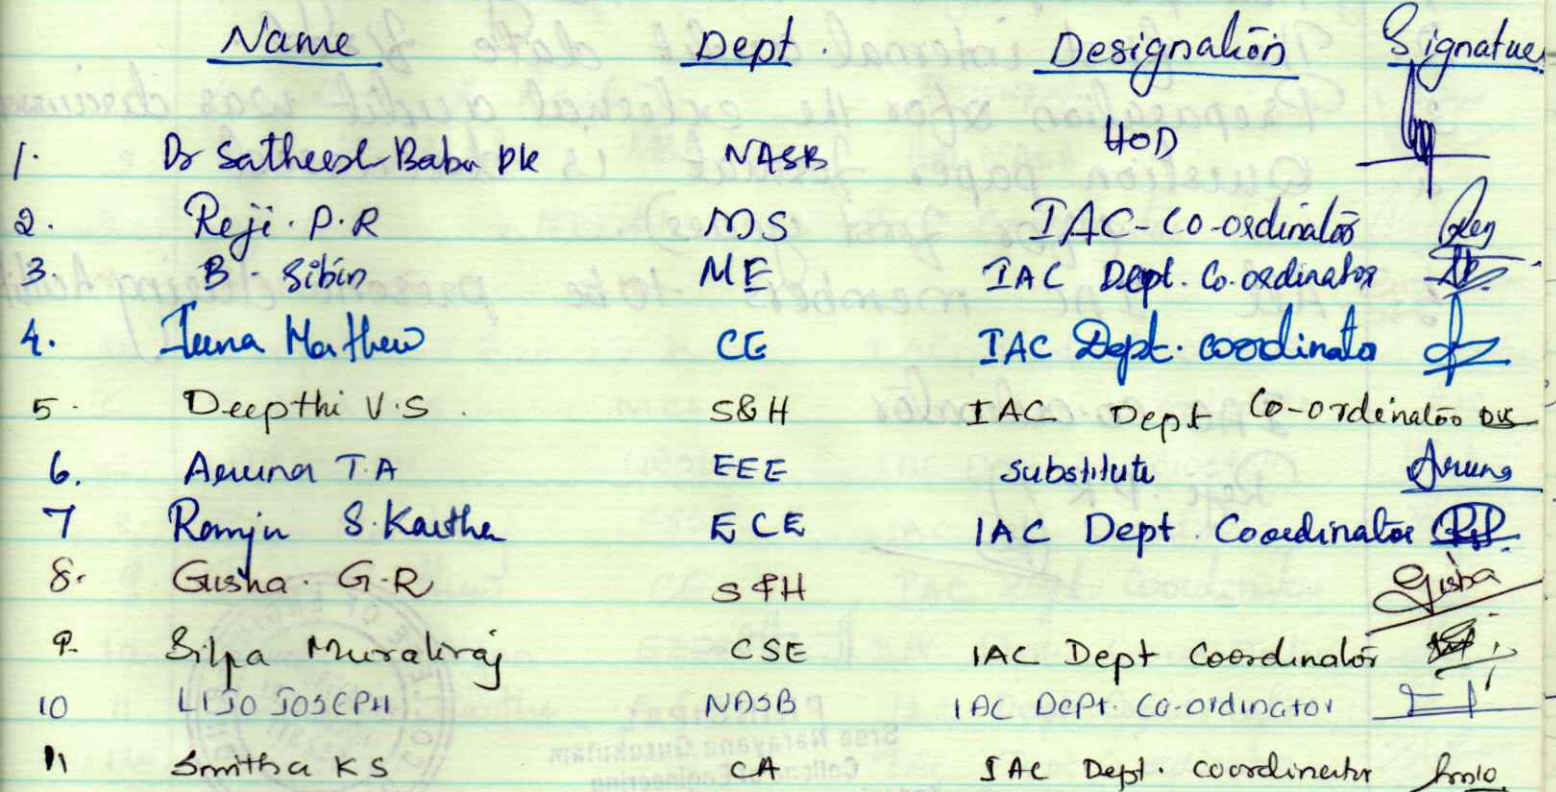 Name Dept. Designation Signature
1. Dr Satheesh Babu PK NASB HOD
2. Reji. P. R MS IAC-Co-ordinator Reji
3. B. Sibin ME IAC Dept. Co-ordinator
4. Teena Mathew CE IAC Dept. coordinator
5. Deepthi V.S. S&H IAC Dept Co-ordinator DVS
6. Aruna T.A EEE substitute Aruna
7 Ramju S. Kartha ECE IAC Dept. Coordinator
8. Gisha. G.R S&H Gisha
9. Silpa Muraliraj CSE IAC Dept Coordinator
10 LIJO JOSEPH NASB IAC Dept. Co-ordinator
11 Smitha K S CA IAC Dept. coordinator